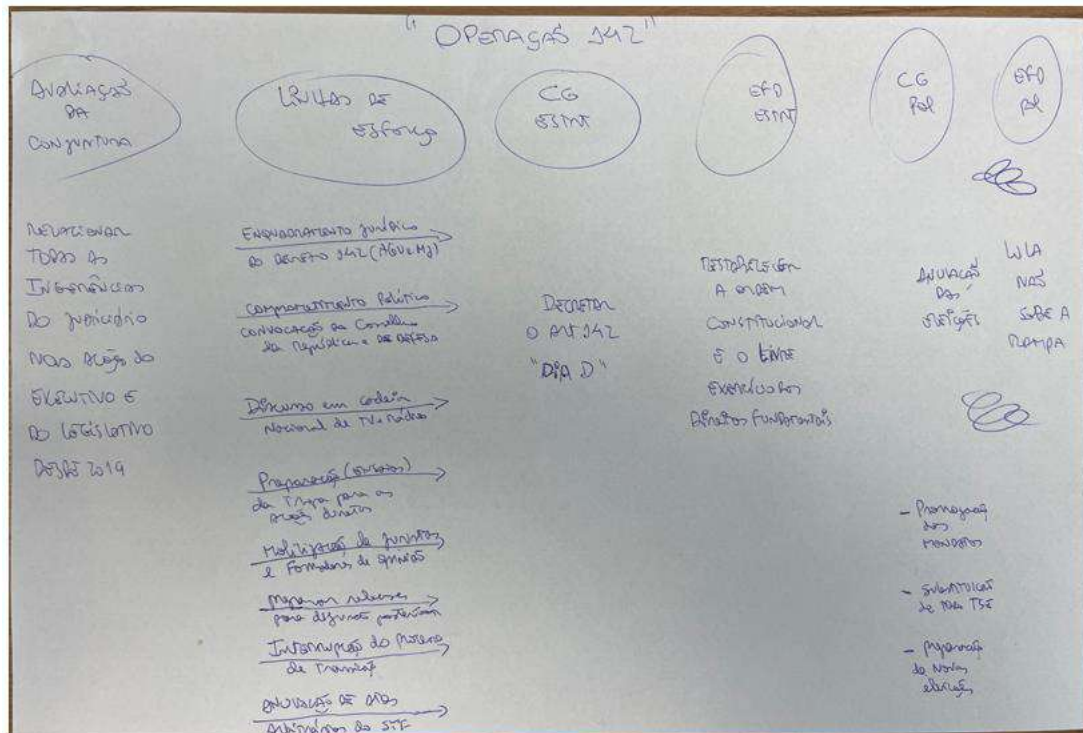 "OPERAÇÃO 142"
AVALIAÇÃO
DA
CONJUNTURA
LINHAS DE
ESFORÇO
CG
ESTRAT
EFD
ESTRAT
CG
POL
EFD
POL
RELACIONAR
TODAS AS
INTERFERÊNCIAS
DO JUDICIÁRIO
NAS AÇÃO DO
EXECUTIVO E
DO LEGISLATIVO
DESDE 2019
ENQUADRAMENTO JURÍDICO
DO DECRETO 142 (AGU e MJ)
COMPROMETIMENTO POLÍTICO
CONVOCAÇÃO DO Conselho
da República e DE DEFESA
Discurso em cadeia
Nacional de TV e Rádio
Preparação (ENSAIOS)
da Tropa para as
ações diretas
Mobilização de juristas
e Formadores de opinião
preparar releases
para
INTERRUPÇÃO do Processo
de Transição
ANULAÇÃO DE ATOS
Arbitrários do STF
DECRETAR
O ART 142
"DIA D"
RESTABELECER
A ORDEM
CONSTITUCIONAL
E O LIVRE
EXERCÍCIO DOS
Direitos FUNDAMENTAIS
ANULAÇÃO
DAS
ELEIÇÕES
- Prorrogação
dos
MANDATOS
- SUBSTITUIÇÃO
de TSE
- Preparação
de Novas
eleições
LULA
NÃO
SOBE A
RAMPA